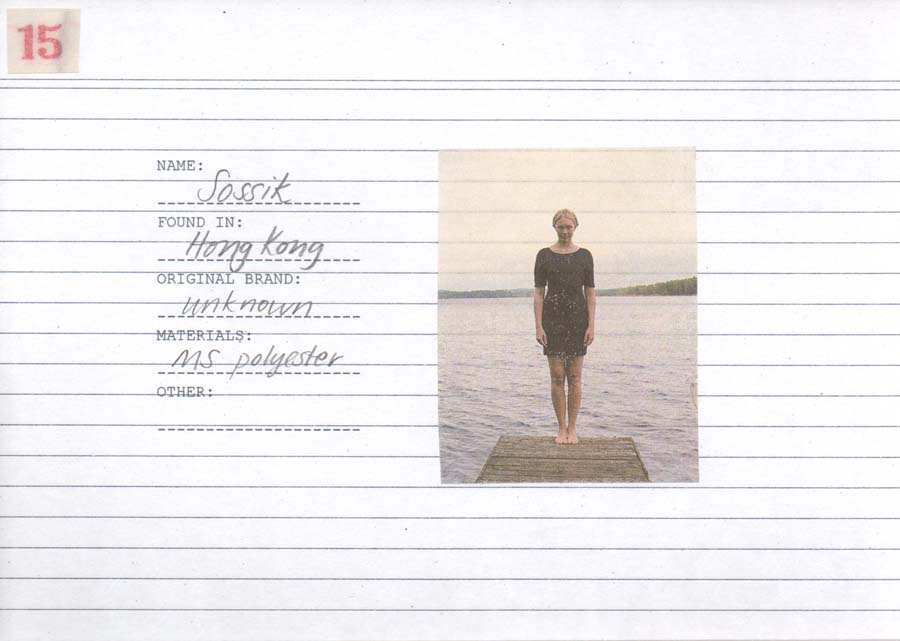 15
NAME:
Sossik
FOUND IN:
Hong Kong
ORIGINAL BRAND:
unknown
MATERIALS:
MS polyester
OTHER: